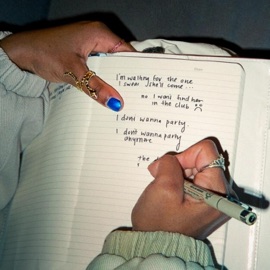 I'm waiting for the one
I swear she'll come...
no I wont find her
in the club
I dont wanna party.
I dont wanna party
anymore
the